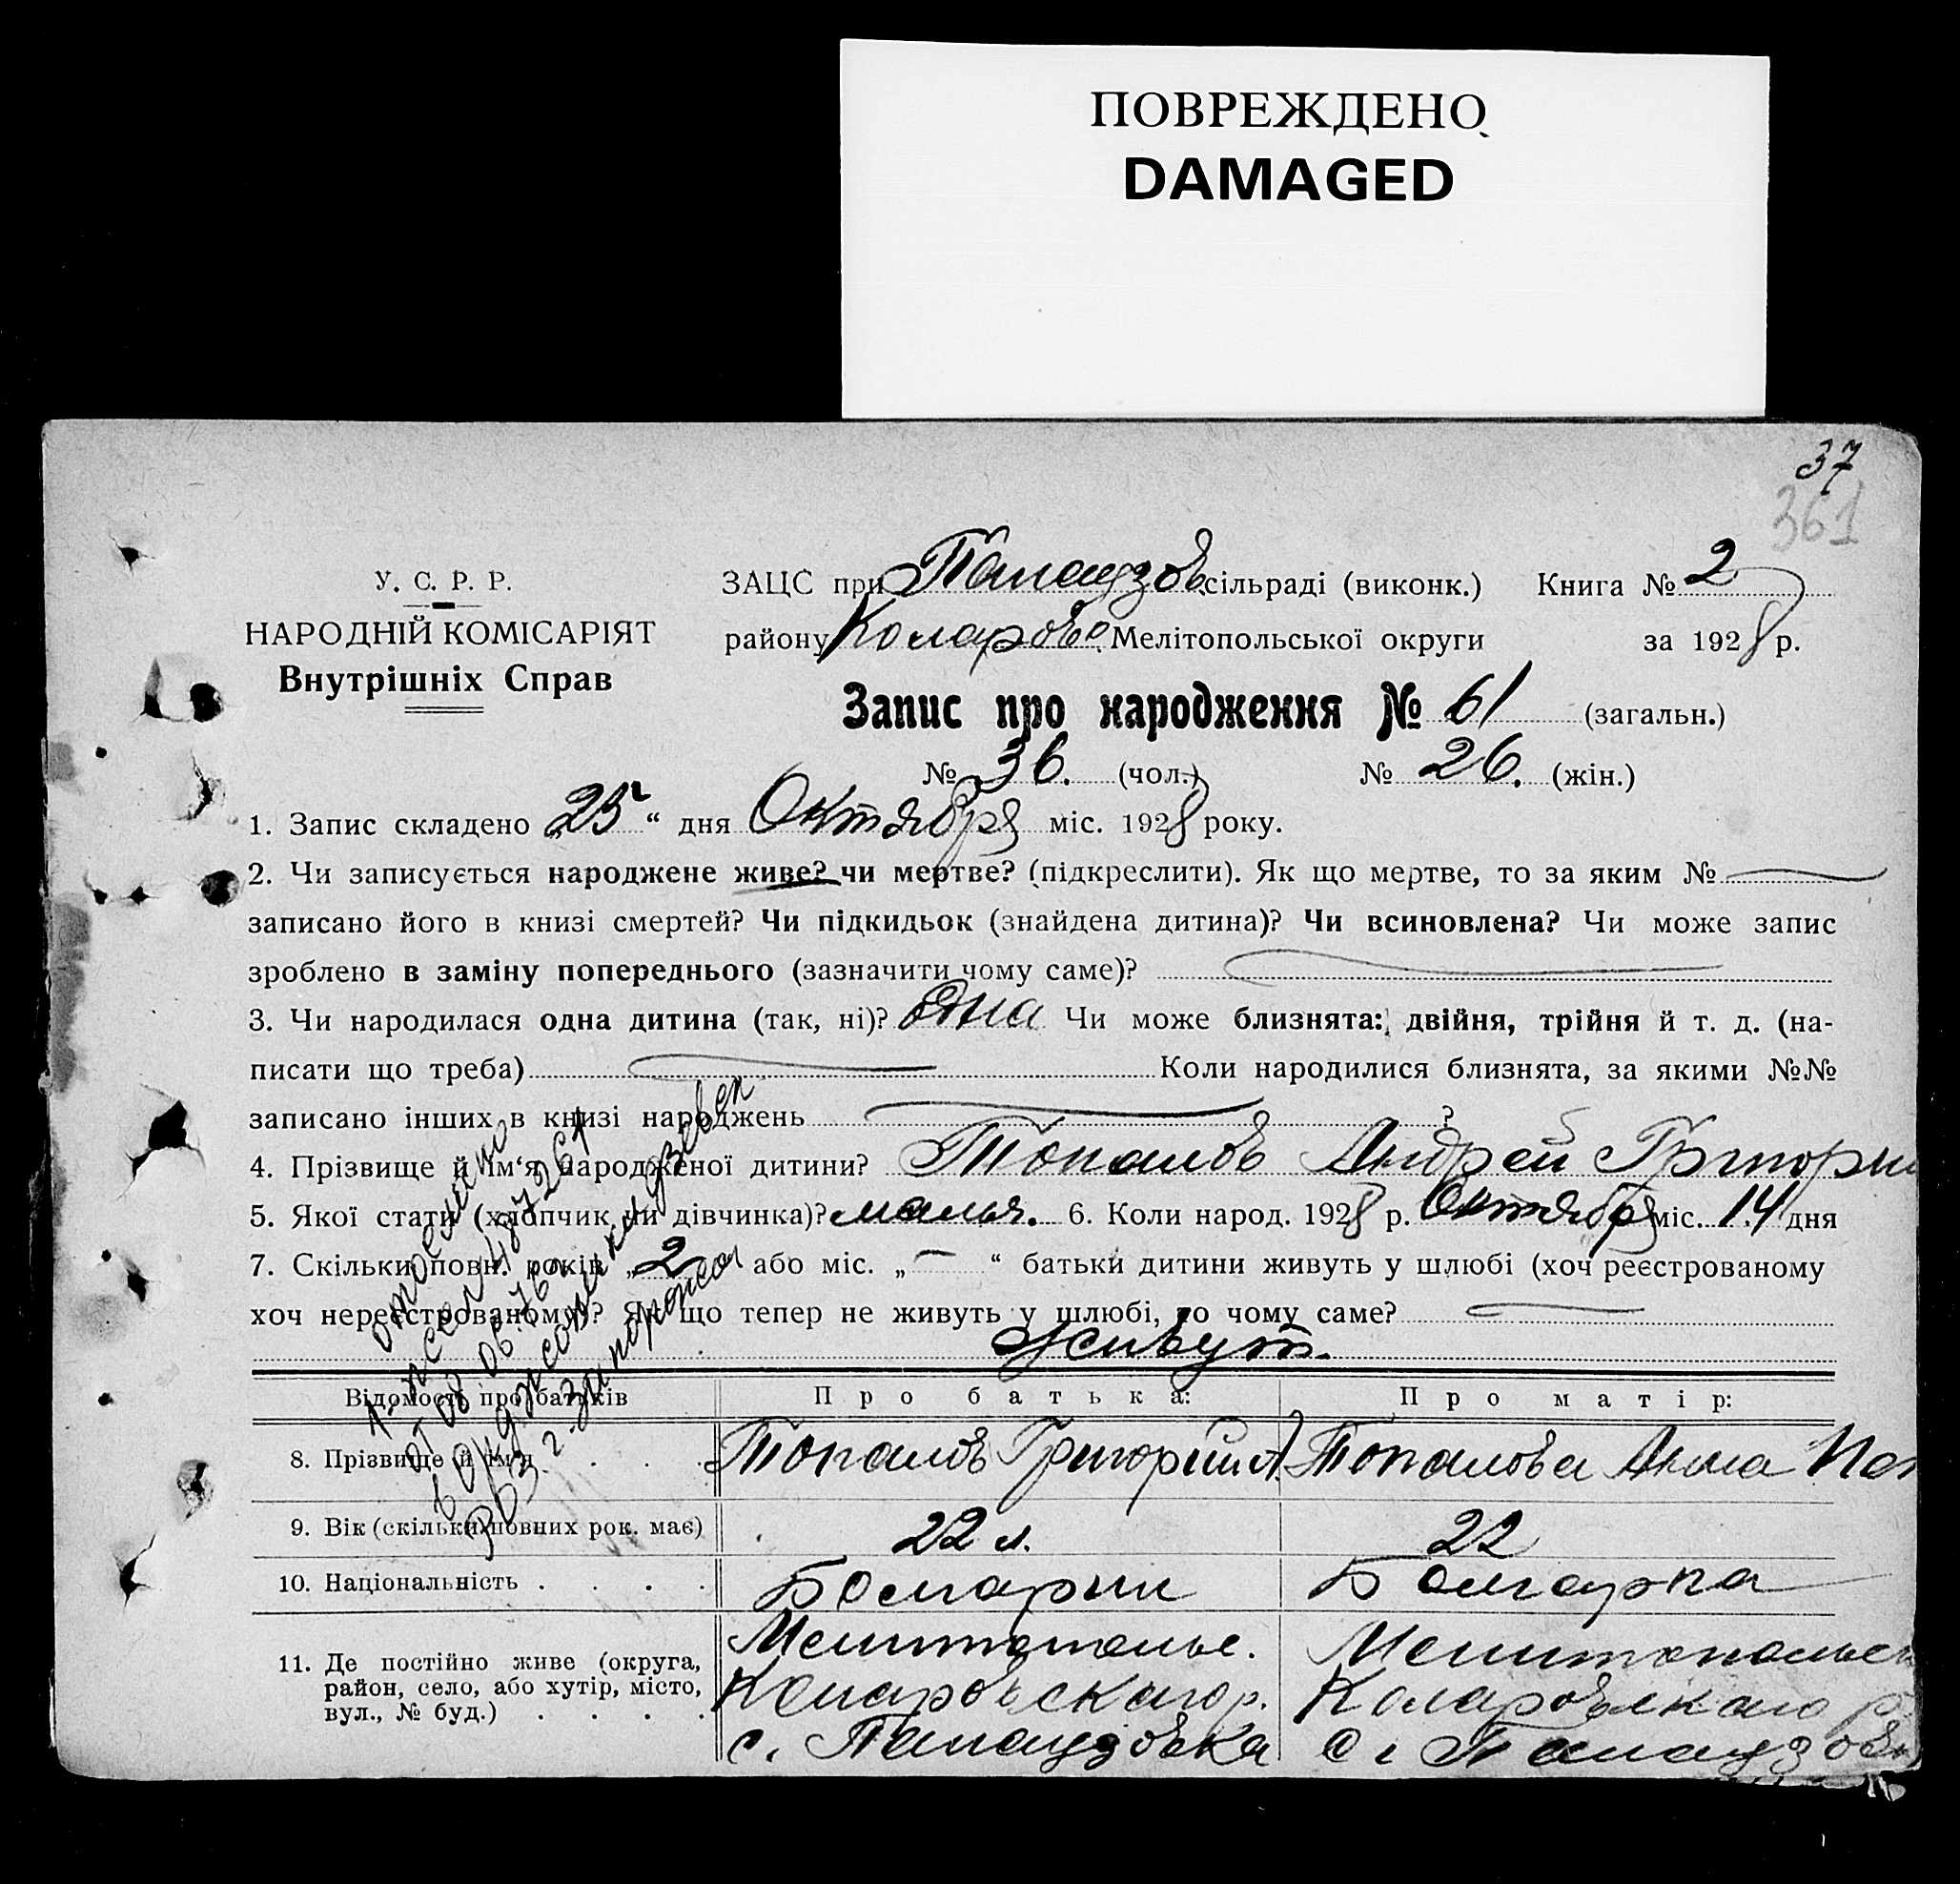 ПОВРЕЖДЕНО
DAMAGED
37
361
У. С. Р. Р.
НАРОДНІЙ КОМІСАРІЯТ
Внутрішніх Справ
ЗАЦС при сільраді (виконк.) Книга № 2
району Коларовс. Мелітопольської округи за 1928 р.
Запис про народження № 61 (загальн.)
№ 36. (чол.) № 26. (жін.)
1. Запис складено „25“ дня Октября міс. 1928 року.
2. Чи записується народжене живе? чи мертве? (підкреслити). Як що мертве, то за яким №
записано його в книзі смертей? Чи підкидьок (знайдена дитина)? Чи всиновлена? Чи може запис
зроблено в заміну попереднього (зазначити чому саме)?
3. Чи народилася одна дитина (так, ні)? Одна Чи може близнята: двійня, трійня й т. д. (на-
писати що треба) Коли народилися близнята, за якими №№
записано інших в книзі народжень ?
4. Прізвище й ім'я народженої дитини? Топалов Андрей Григори
5. Якої стати (хлопчик чи дівчинка)? мальч. 6. Коли народ. 1928 р. Октября міс. 14 дня
7. Скільки повн. років „2 або міс. „—“ батьки дитини живуть у шлюбі (хоч реєстрованому
хоч нереєстрованому)? Як що тепер не живуть у шлюбі, то чому саме?
Живут.
Відомость про батьків Про батька: Про матір:
8. Прізвище й ім'я Топалов Григорий А Топалова Анна
9. Вік (скільки повних рок. має) 22 л. 22
10. Національність Болгарин Болгарка
11. Де постійно живе (округа,
район, село, або хутір, місто,
вул., № буд.)
Мелитопольс.
Коларовскаго р.
с.
Мелитопольск
Коларовскаго р
с